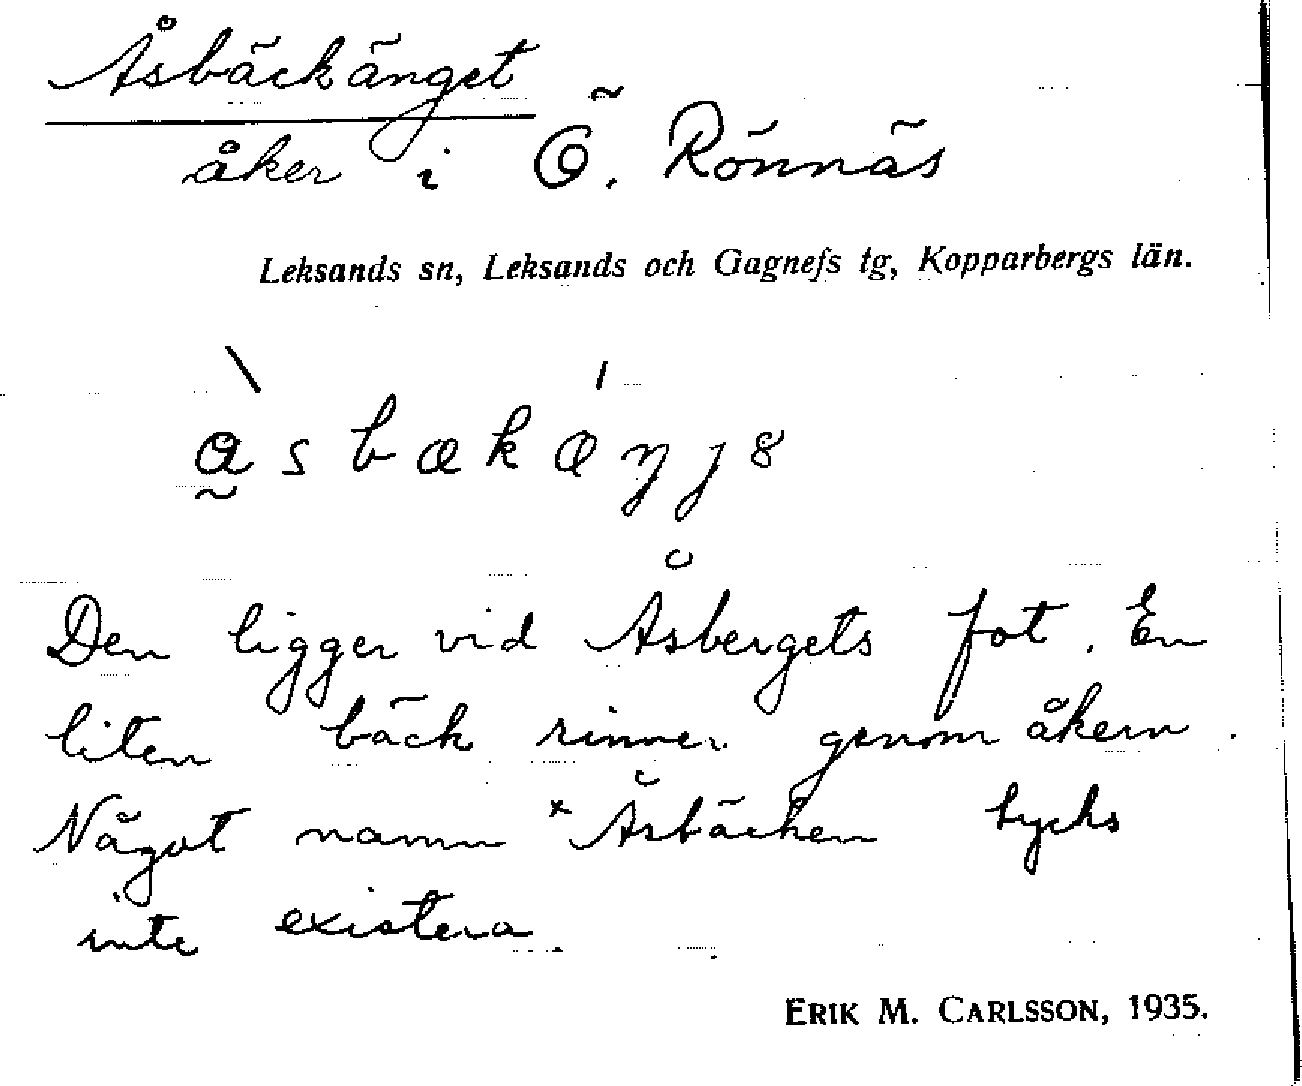 Åsbäckänget
åker i Ö. Rönnäs
Leksands sn, Leksands och Gagnefs tg, Kopparbergs län.
Den ligger vid Åsbergets fot. En
liten bäck rinner genom åkern.
Något namn *Åsbäcken tycks
inte existera.
ERIK M. CARLSSON, 1935.